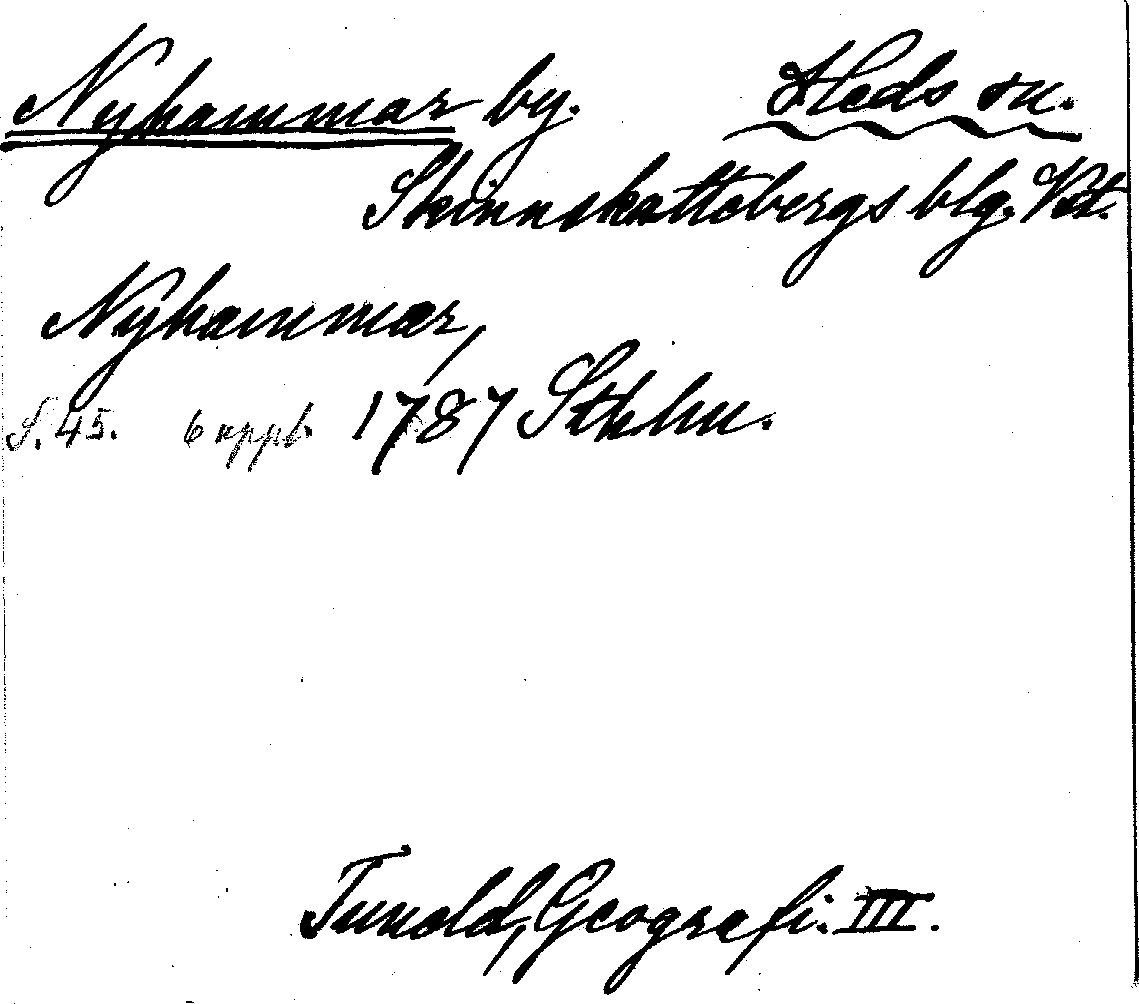 Nyhammar by. Heds sn.
Skinnskattebergs blg. Vstl.
Nyhammar,
S. 45. 6 uppl. 1787 Sthlm.
Tuneld, Geografi. III.